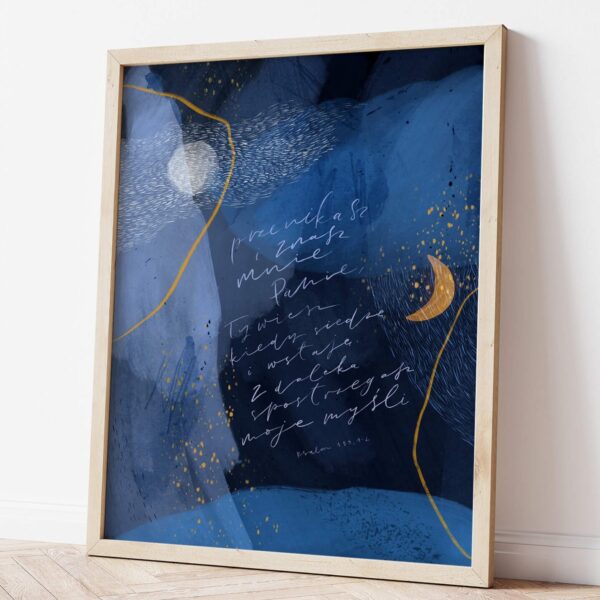 przenikasz
i znasz
mnie
Panie,
Ty wiesz
kiedy siedzę
i wstaję
z daleka
spostrzegasz
moje myśli
Psalm 139,1-2